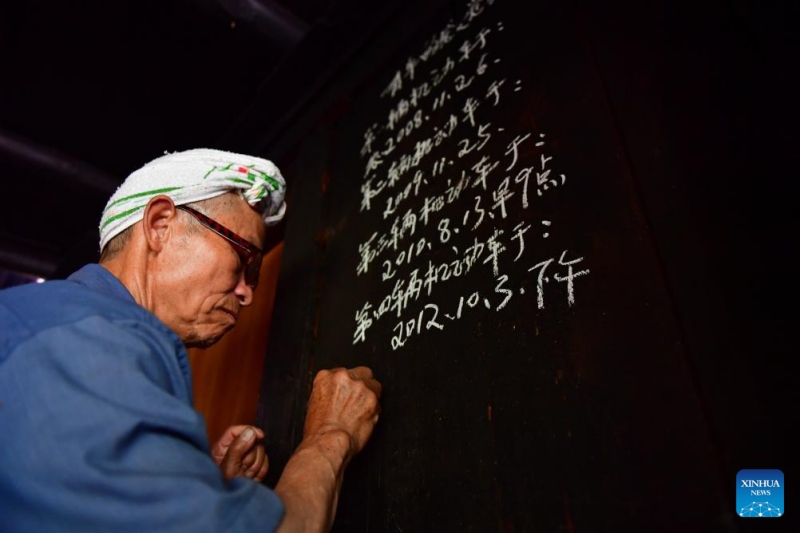 第一辆机动车于:
2008.11.26.
第二辆机动车于:
2009.11.25.
第三辆机动车于:
2010.8.13.早9点
第四辆机动车于:
2012.10.3.下午
XINHUA
NEWS